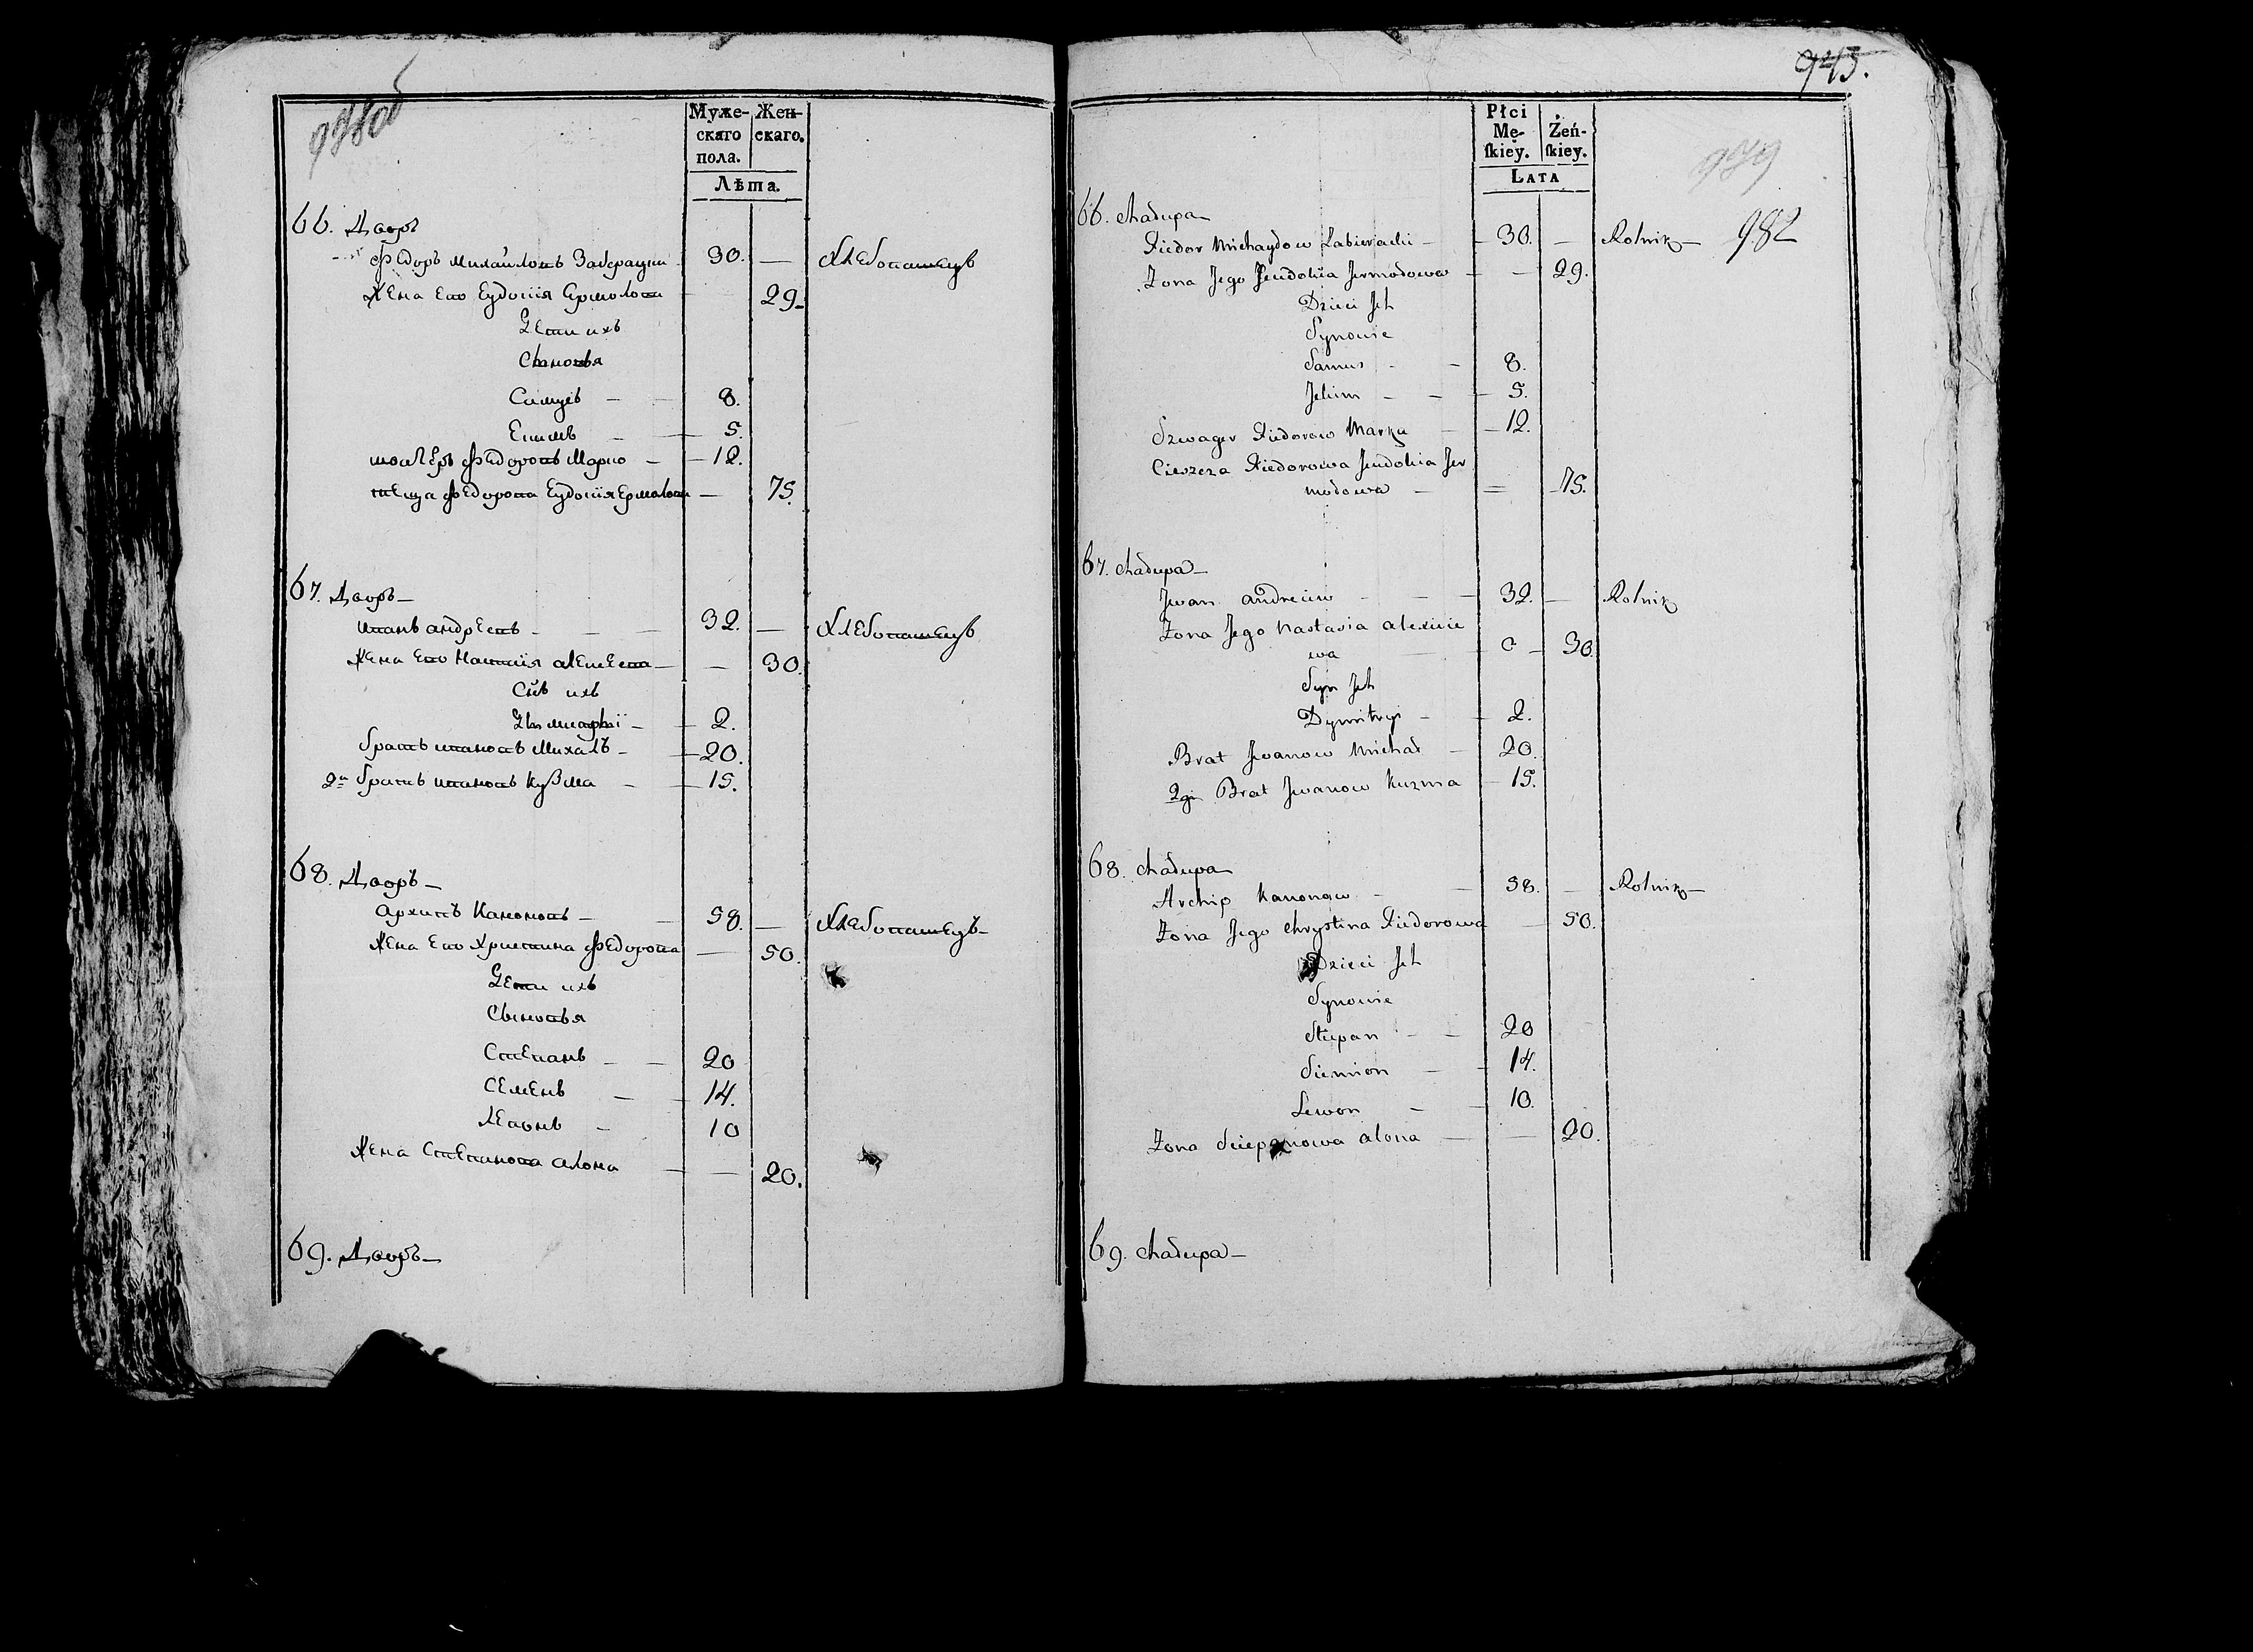 978об
Муже-
скаго
пола.
Жен-
скаго.
Лѣта.
66. Дворъ
Федоръ Михайловъ Заберацки 30. — Хлебопашецъ
Жена Его Еудокія Ермолова 29.
Дети ихъ
Сыновья
Самусь — 8.
Екимъ — 5.
шваґеръ Федоровъ Марко — 12.
теща Федорова Еудокія Ермолова — 75.
67. Дворъ —
иванъ андреевъ — 32. — Хлебопашецъ
Жена Его Настасія алексеева — — 30.
Снъ ихъ
Дымитрыі — 2.
братъ ивановъ Михалъ — 20.
2й братъ ивановъ Кузма — 15.
68. Дворъ —
архипъ Каноновъ — 58. — Хлебопашецъ —
Жена Его Христина Федорова — 50.
Дети ихъ
Сыновья
Степанъ — 20
Семенъ — 14.
Левонъ — 10
Жена Степанова алона — 20.
69. Дворъ —
945.
979
982
Płci
Mę-
skiey.
Żeń-
skiey.
LATA
66. Chałupa
Fiedor Michayłow Zabieracki — 30. — Rolnik —
Zona Jego Jeudokia Jermołowa — — 29.
Dzieci Jch
Synowie
Samuś — 8.
Jekim — 5.
Szwagier Fiedorow Marko — 12.
Cieszcza Fiedorowa Jeudokia Jer
mołowa — = 75.
67. Chałupa —
Jwan andreiew — 32. — Rolnik
Zona Jego Nastasia alexieie
wa — 30.
Syn Jch
Dymitryi — 2.
Brat Jwanow Michał — 20.
2gi Brat Jwanow Kuzma — 15.
68. Chałupa
Archip Kanonow — 58. — Rolnik —
Zona Jego Chrystina Fiedorowa — 50.
Dzieci Jch
Synowie
Stiepan — 20
Siemion — 14.
Lewon — 10.
Zona Sciepanowa alona — — 20.
69. Chałupa —